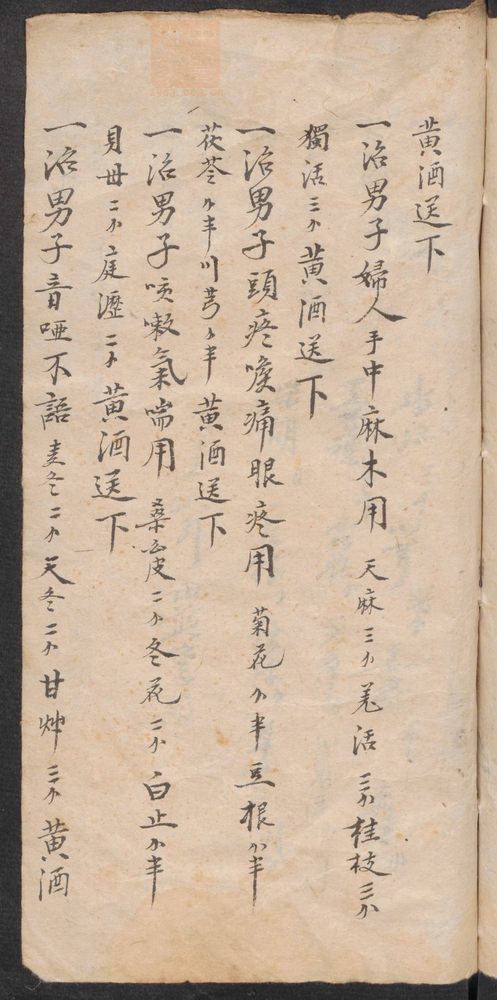 黃酒送下
一治男子婦人手中麻木用 天麻三分羌活三分桂枝三分
獨活三分黃酒送下
一治男子頭疼喉痛眼疼用 菊花分半豆根分半
茯苓分半川芎分半黃酒送下
一治男子咳嗽氣喘用 桑皮二分冬花二分白止分半
貝母二分庭瀝二分黃酒送下
一治男子音啞不語 麦冬二分天冬二分甘艸三分黃酒